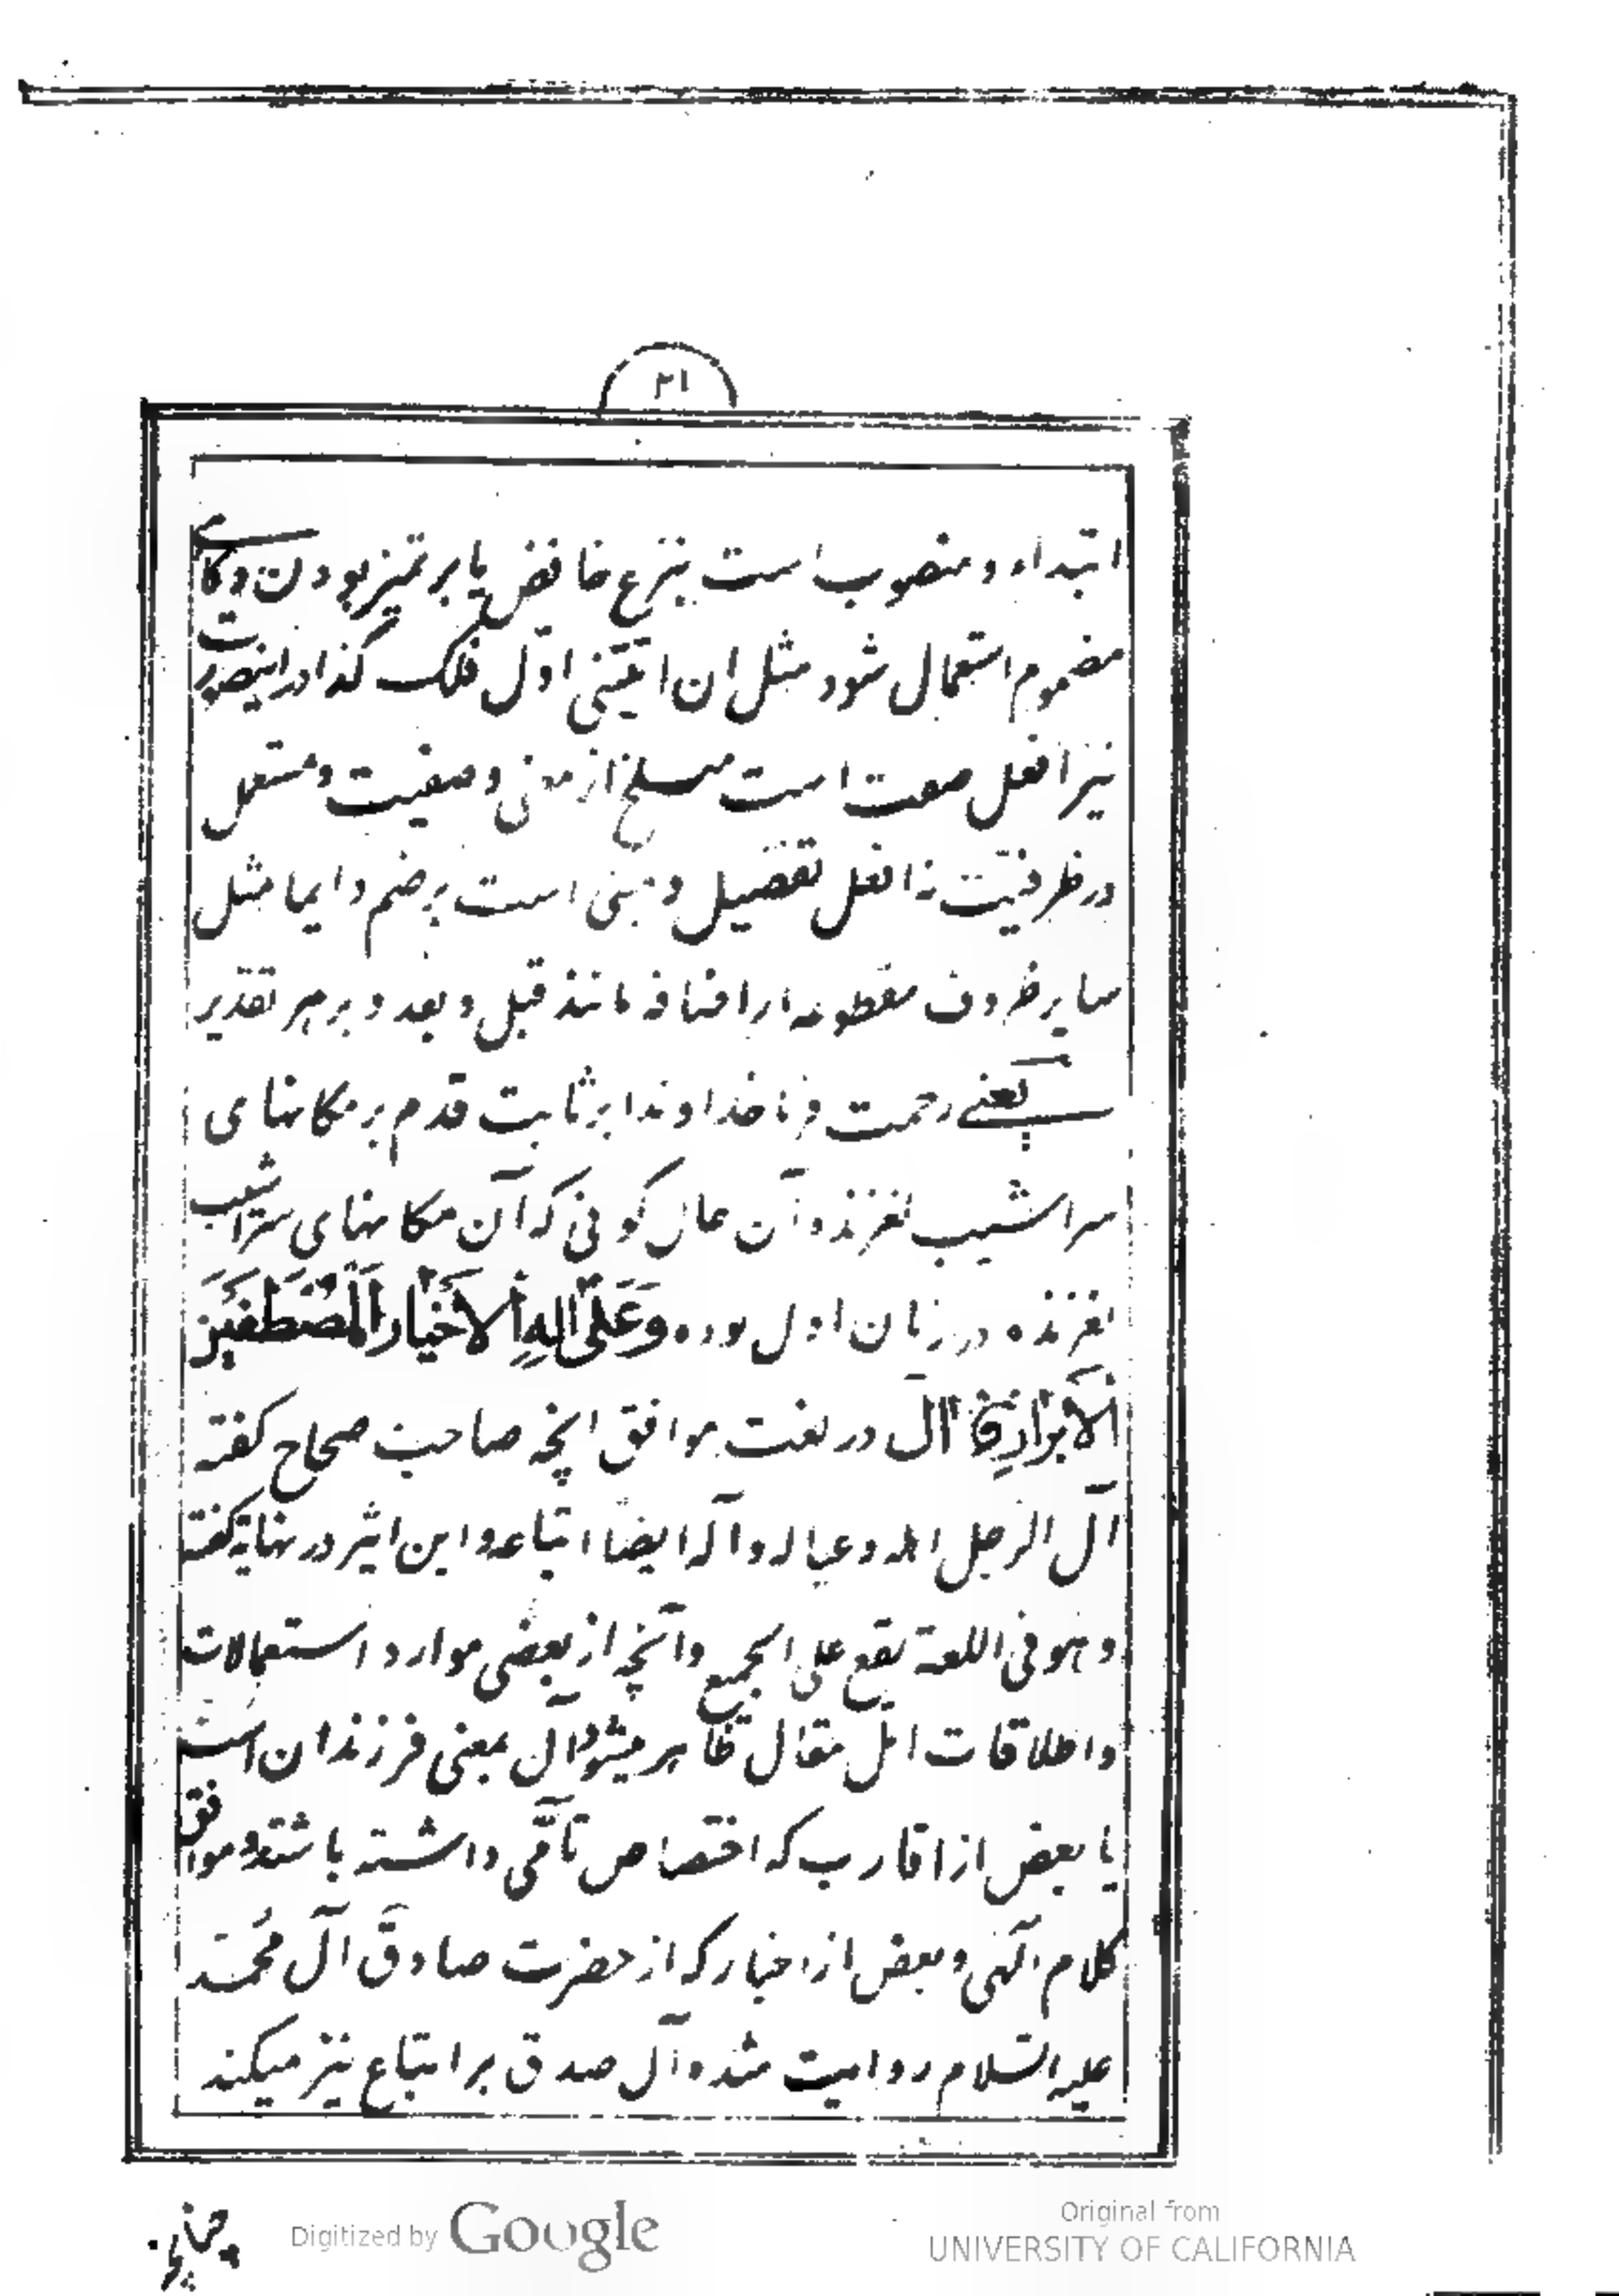 ۲۱
ابتداء و منصوب است بنزع خافض یا بر تمیز بودن و کاے
مضموم استعمال شود مثل ان اتیتنی اوّل فلک کذا در اینصورت
نیز افعل صفت است منسلخ از معنی وصفیت و مستعمل
در ظرفیّت نه افعل تفضیل و مبنی است بر ضم دایما مثل
سایر ظروف مقطوعه از اضافه مانند قبل و بعد و بر هر تقدیر
یعنے رحمت فرما خداوندا بر ثابت قدم بر مکانهای
سراشیب لغزنده آن حال کونی که آن مکانهای سراشیب
لغزنده در زمان اول بوده وَعَلىٰ اٰلِهِ الْاَخْيَارِ الْمُصْطَفَيْنَ
الْاَبْرَارِ آل در لغت موافق انچه صاحب صحاح کفته
آل الرّجل اهله و عیاله و آله ایضاً اتباعه و ابن اثیر در نهایة کفته
و هو فی اللغة یقع علی الجمیع و آنچه از بعضی موارد استعمالات
و اطلاقات اهل مقال ظاهر میشود آل بمعنی فرزندان است
یا بعض از اقارب که اختصاص تامّی داشته باشند و موافق
کلام الٓهی و بعض از اخبار که از حضرت صادق آل محمّد
علیه السّلام روایت شده آل صدق بر اتباع نیز میکند
چنانچه
Digitized by Google
Original from
UNIVERSITY OF CALIFORNIA